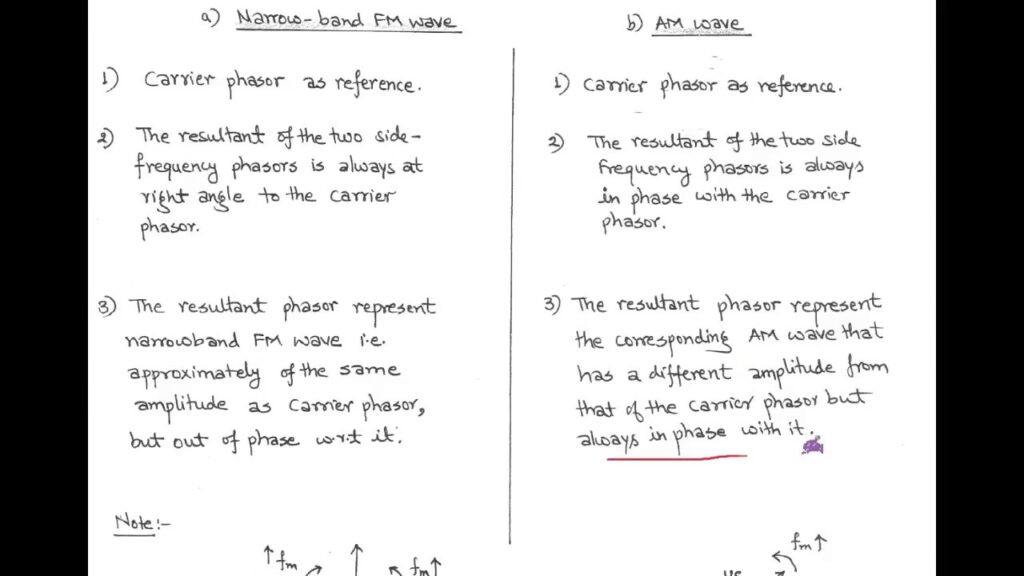 a) Narrow-band FM wave
1) Carrier phasor as reference.
2) The resultant of the two side-
frequency phasors is always at
right angle to the carrier
phasor.
3) The resultant phasor represent
narrowband FM wave i.e.
approximately of the same
amplitude as Carrier phasor,
but out of phase w.r.t it.
Note:-
↑fm
fm↑
b) AM wave
1) Carrier phasor as reference.
2) The resultant of the two side
frequency phasors is always
in phase with the carrier
phasor.
3) The resultant phasor represent
the corresponding AM wave that
has a different amplitude from
that of the carrier phasor but
always in phase with it.
fm↑